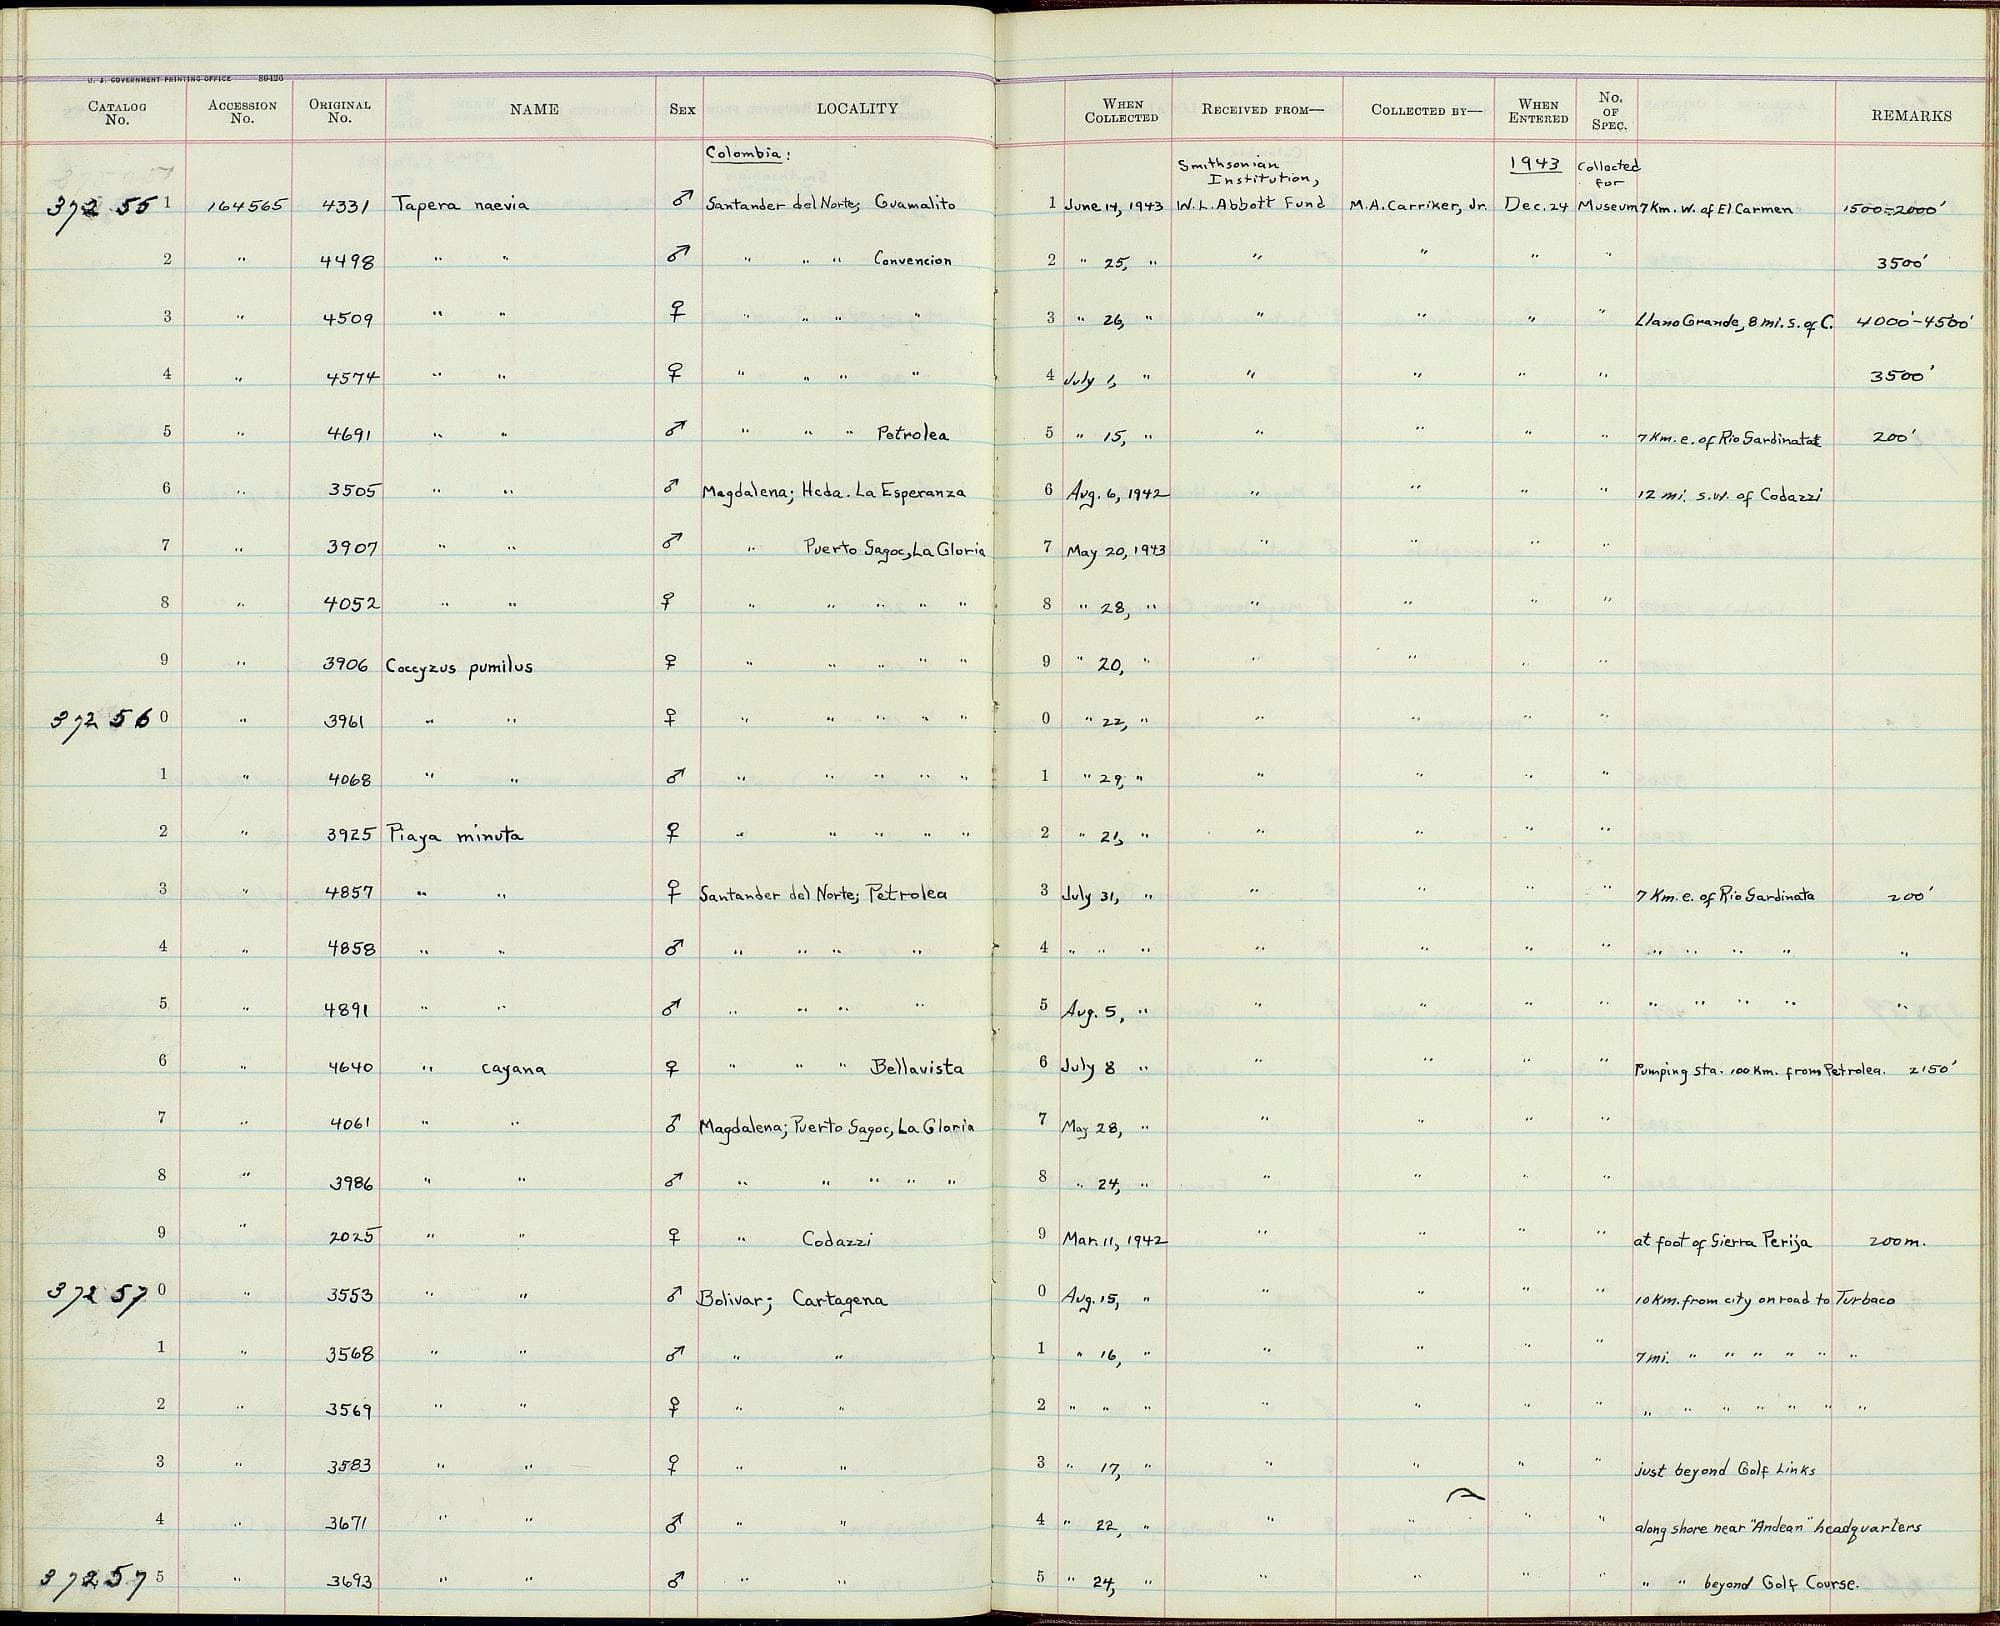 U. S. GOVERNMENT PRINTING OFFICE 89426
CATALOG No. ACCESSION No. ORIGINAL No. NAME SEX LOCALITY WHEN COLLECTED RECEIVED FROM— COLLECTED BY— WHEN ENTERED No. OF SPEC. REMARKS
Colombia: Smithsonian Institution, 1943 Collected for
372551 164565 4331 Tapera naevia ♂ Santander del Norte; Guamalito 1 June 14, 1943 W. L. Abbott Fund M.A. Carriker, Jr. Dec. 24 Museum 7 Km. W. of El Carmen 1500-2000'
2 " 4498 " " ♂ " " " Convencion 2 " 25, " " " " " 3500'
3 " 4509 " " ♀ " " " " 3 " 26, " " " " " Llano Grande, 8 mi. S. of C. 4000'-4500'
4 " 4574 " " ♀ " " " " 4 July 1, " " " " " 3500'
5 " 4691 " " ♂ " " " Petrolea 5 " 15, " " " " " 7 Km. e. of Rio Sardinata 200'
6 " 3505 " " ♂ Magdalena; Hcda. La Esperanza 6 Aug. 6, 1942 " " " " 12 mi. s.w. of Codazzi
7 " 3907 " " ♂ " Puerto Sagoc, La Gloria 7 May 20, 1943 " " " "
8 " 4052 " " ♀ " " " " " 8 " 28, " " " " "
9 " 3906 Coccyzus pumilus ♀ " " " " " 9 " 20, " " " " "
372560 " 3961 " " ♀ " " " " " 0 " 22, " " " " "
1 " 4068 " " ♂ " " " " " 1 " 29, " " " " "
2 " 3925 Piaya minuta ♀ " " " " " 2 " 21, " " " " "
3 " 4857 " " ♀ Santander del Norte; Petrolea 3 July 31, " " " " " 7 Km. e. of Rio Sardinata 200'
4 " 4858 " " ♂ " " " " 4 " " " " " " " " " " " "
5 " 4891 " " ♂ " " " " 5 Aug. 5, " " " " " " " " " "
6 " 4640 " cayana ♀ " " " Bellavista 6 July 8 " " " " " Pumping sta. 100 Km. from Petrolea. 2150'
7 " 4061 " " ♂ Magdalena; Puerto Sagoc, La Gloria 7 May 28, " " " " "
8 " 3986 " " ♂ " " " " " 8 " 24, " " " " "
9 " 2025 " " ♀ " Codazzi 9 Mar. 11, 1942 " " " " at foot of Sierra Perija 200 m.
372570 " 3553 " " ♂ Bolivar; Cartagena 0 Aug. 15, " " " " " 10 Km. from city on road to Turbaco
1 " 3568 " " ♂ " " 1 " 16, " " " " " 7 mi. " " " " " "
2 " 3569 " " ♀ " " 2 " " " " " " " " " " " " " "
3 " 3583 " " ♀ " " 3 " 17, " " " " " just beyond Golf Links
4 " 3671 " " ♂ " " 4 " 22, " " " " " along shore near "Andean" headquarters
372575 " 3693 " " ♂ " " 5 " 24, " " " " " " " beyond Golf Course.